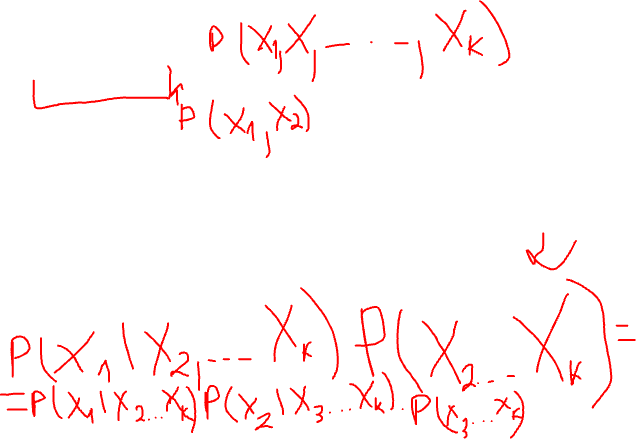 P(X1,X,-..-,XK)
P(X1,X2)
P(X1|X2,...XK)P(X2...XK)=
=P(X1|X2...XK)P(X2|X3...XK).P(X3...XK)